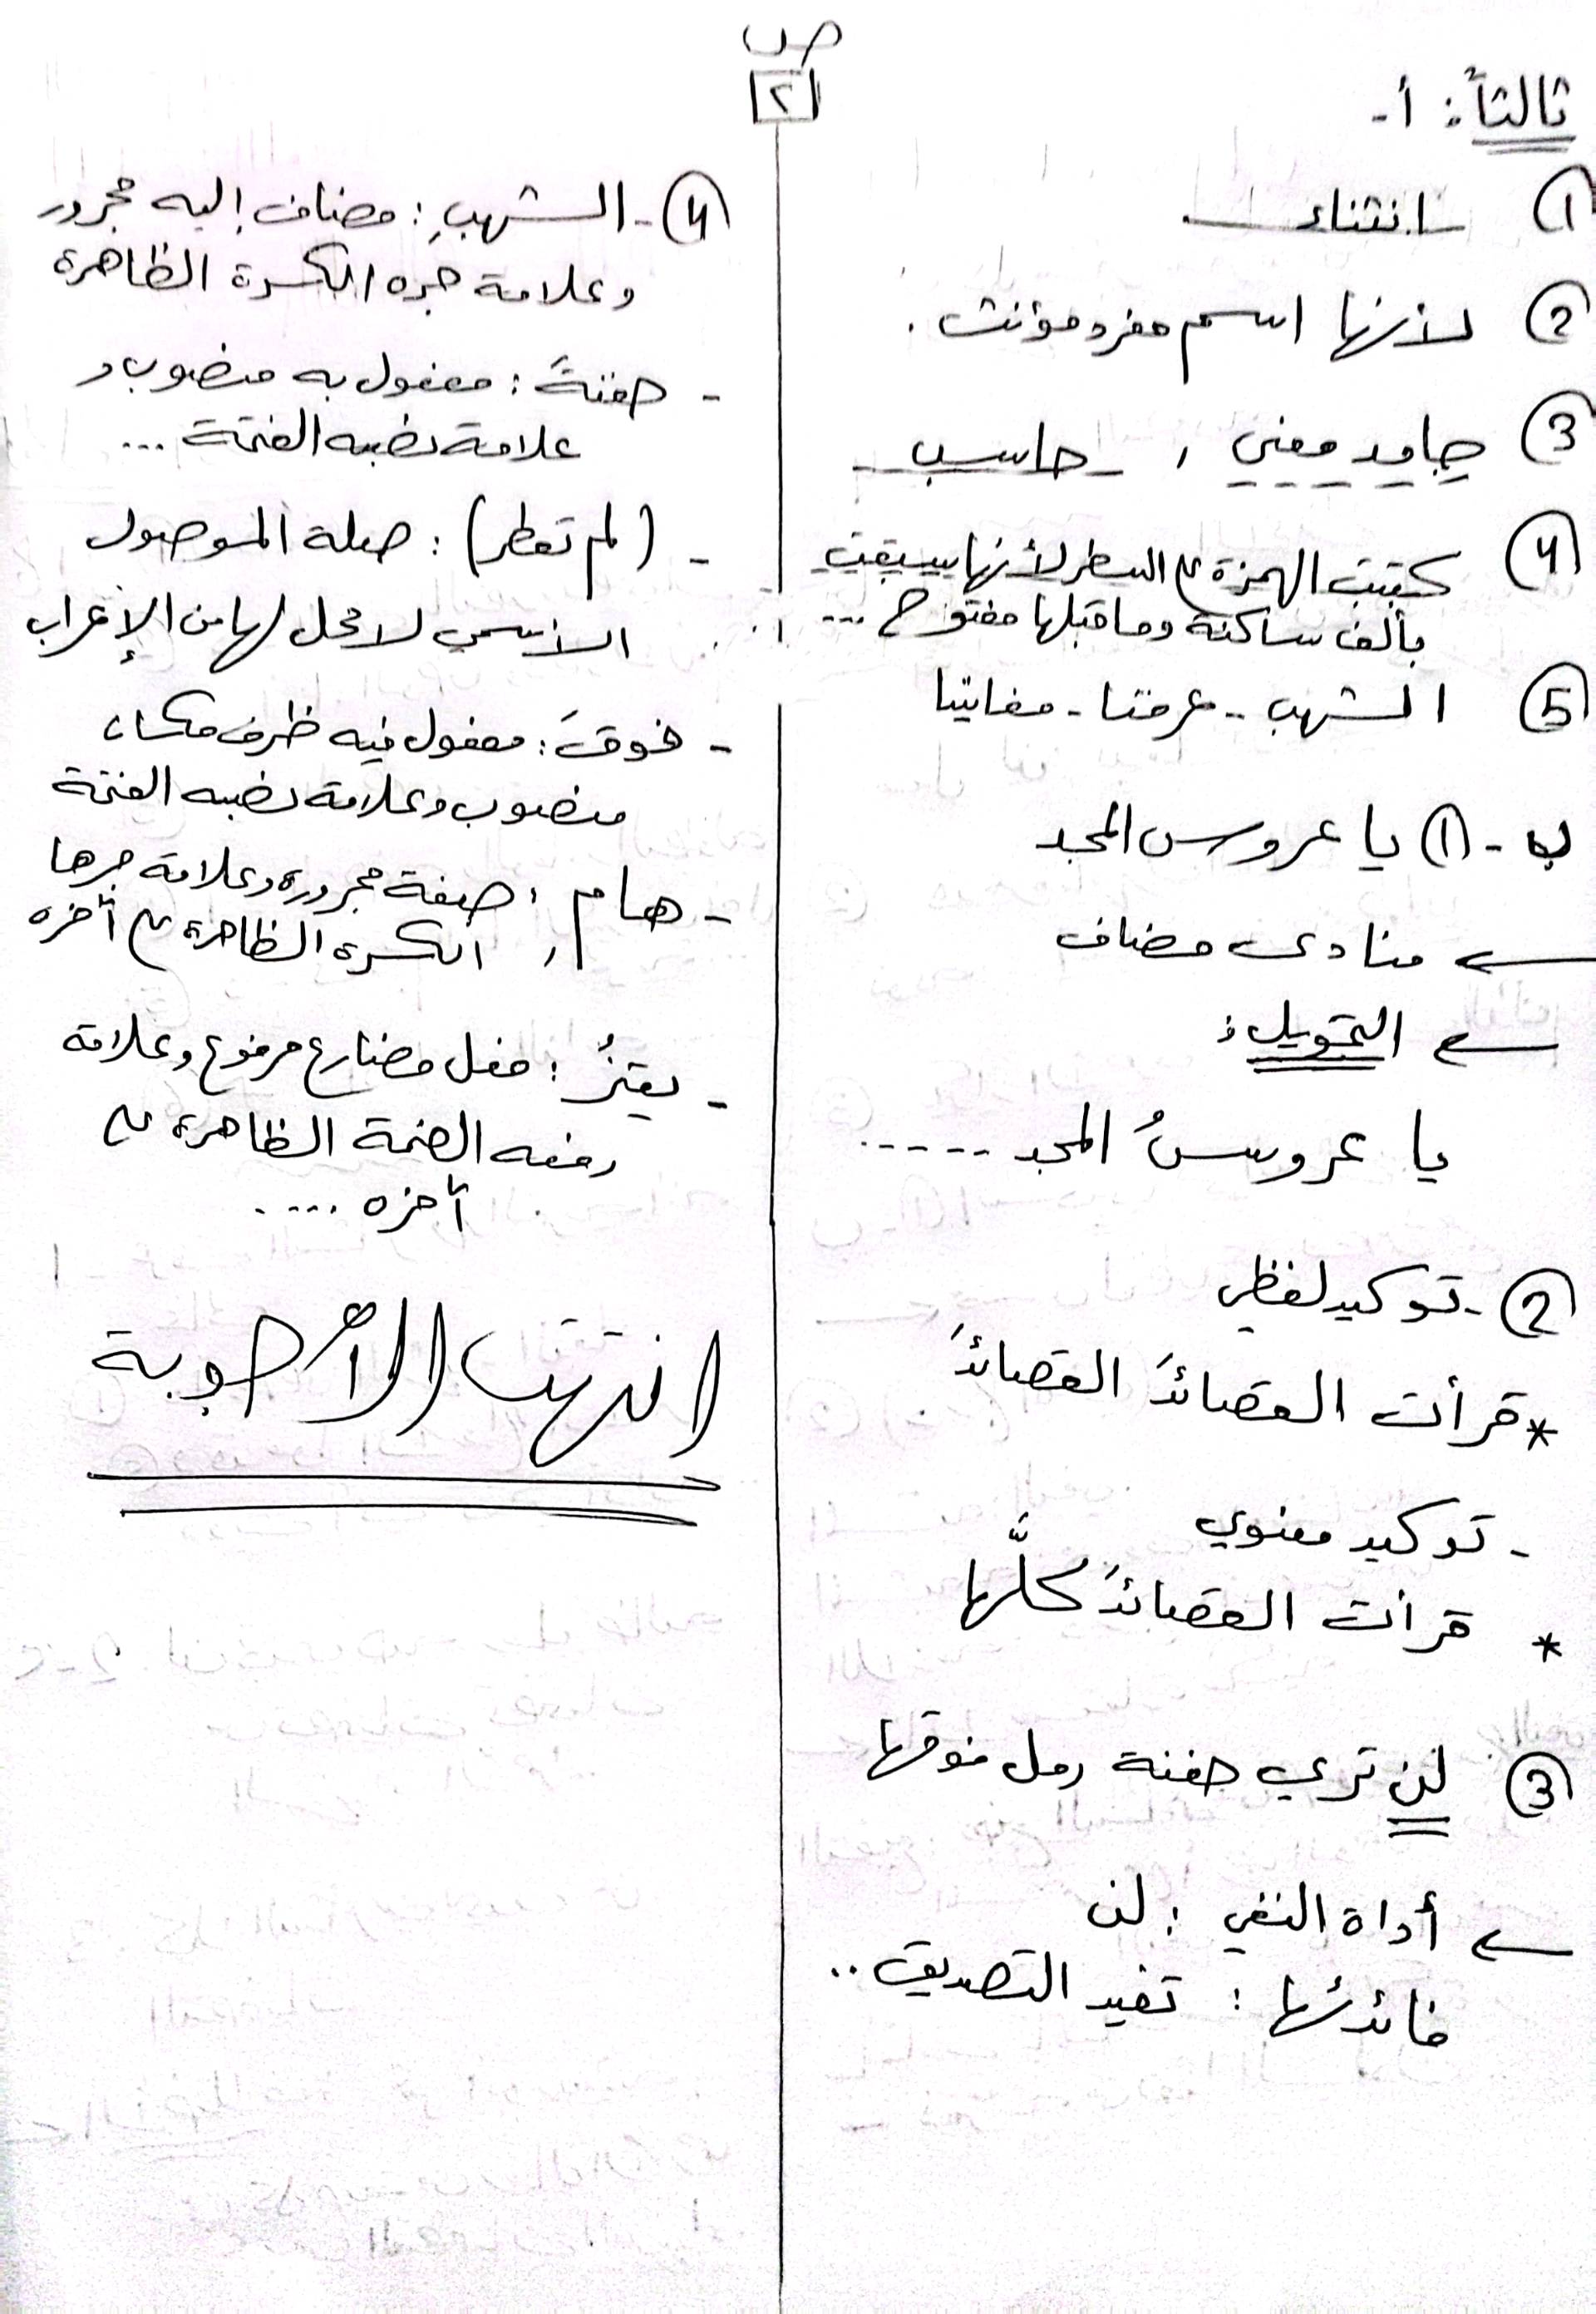 ص
٢
ثالثاً: أ-
① انثناء
② لأنها اسم مفرد مؤنث.
③ جامد معنى , حاسب
④ كتبت الهمزة على السطر لأنها سبقت
بألف ساكنة وما قبلها مفتوح ...
⑤ الشهب - عرفتنا - مغانينا
ب - ① يا عروس المجد
منادى مضاف
التحويل:
يا عروسُ المجد .....
② - توكيد لفظي
* قرأت القصائدَ القصائدَ
- توكيد معنوي
* قرأت القصائدَ كلَّها
③ لن تري حفنة رمل فوقها
أداة النفي : لن
فائدتها : تفيد التصديق ..
④ - الشهبِ : مضاف إليه مجرور
وعلامة جره الكسرة الظاهرة
- حفنةَ : مفعول به منصوب و
علامة نصبه الفتحة ...
- (لم تعطر) : صلة الموصول
الاسمي لا محل لها من الإعراب
- فوقَ : مفعول فيه ظرف مكان
منصوب وعلامة نصبه الفتحة
- هام : صفة مجرورة وعلامة جرها
الكسرة الظاهرة على آخره
- يعتزُ : فعل مضارع مرفوع وعلامة
رفعه الضمة الظاهرة على
آخره ....
انتهت الأجوبة